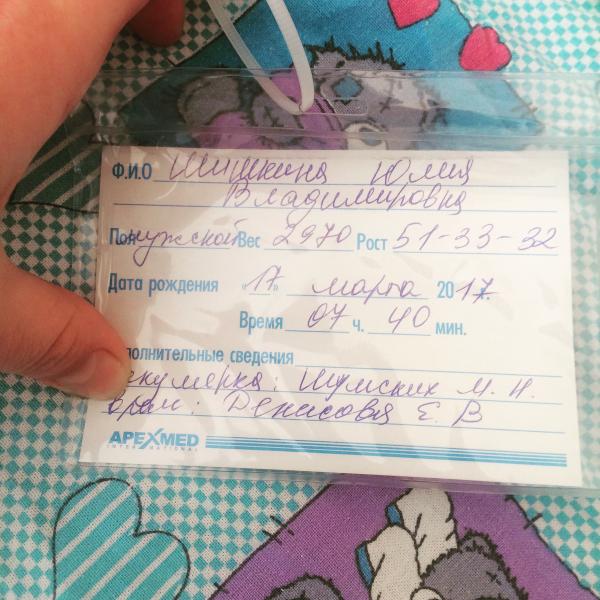 Ф.И.О Шишкина Юлия
Владимировна
Пол мужской Вес 2970 Рост 51-33-32
Дата рождения «17» марта 2017.
Время 07 ч. 40 мин.
полнительные сведения
акушерка: Шумских М. Н.
врач: Денисова Е. В
APEXMED
INTERNATIONAL